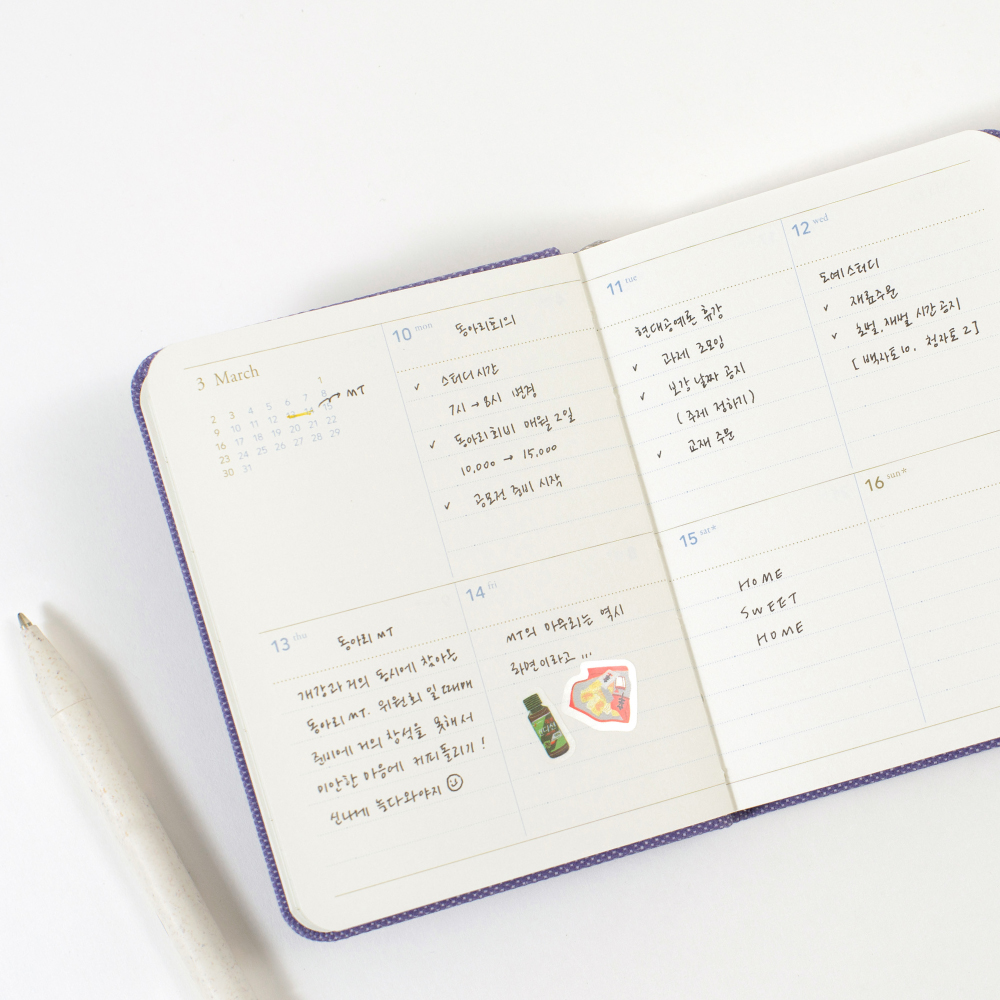 3 March
MT
1
2 3 4 5 6 7 8
9 10 11 12 13 14 15
16 17 18 19 20 21 22
23 24 25 26 27 28 29
30 31
10 mon 동아리회의
✓ 스터디 시간
7시 → 8시 변경
✓ 동아리회비 매월 2일
10,000 → 15,000
✓ 공모전 준비 시작
11 tue
현대공예론 휴강
✓ 과제 조모임
✓ 보강 날짜 공지
(주제 정하기)
✓ 교재 주문
12 wed
도예스터디
✓ 재료주문
✓ 초벌, 재벌 시간 공지
[백사토10, 청자토2]
13 thu 동아리 MT
개강과 거의 동시에 찾아온
동아리 MT. 위원회 일 때매
준비에 거의 참석을 못해서
미안한 마음에 커피돌리기!
신나게 놀다와야지
14 fri
MT의 마무리는 역시
라면이라고 ...
15 sat*
HOME
SWEET
HOME
16 sun*